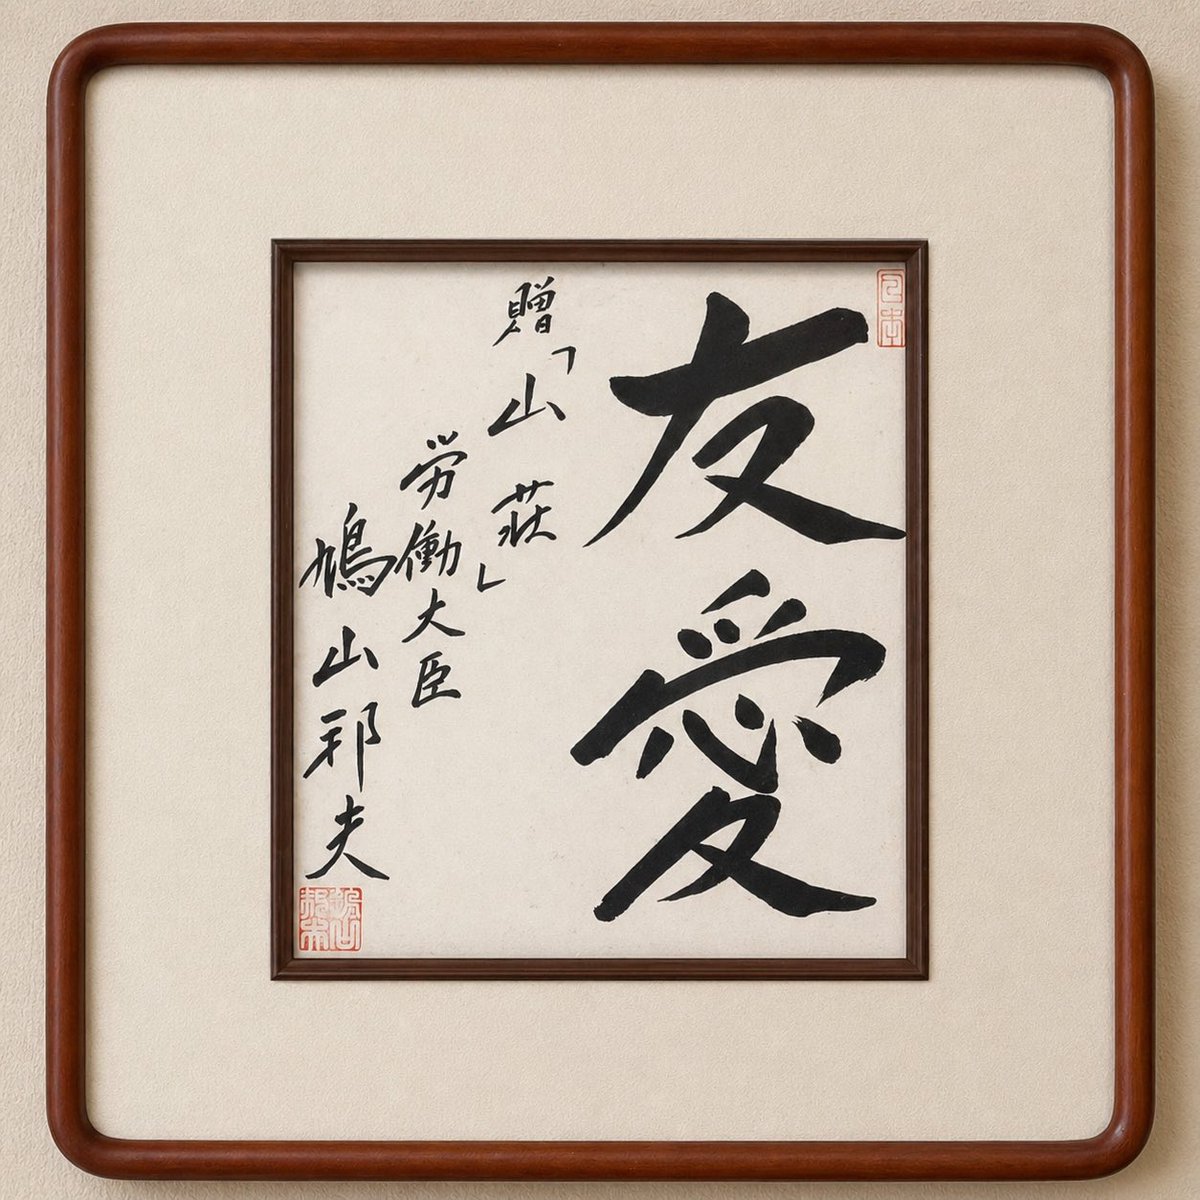 友愛
贈「山荘」
労働大臣
鳩山邦夫